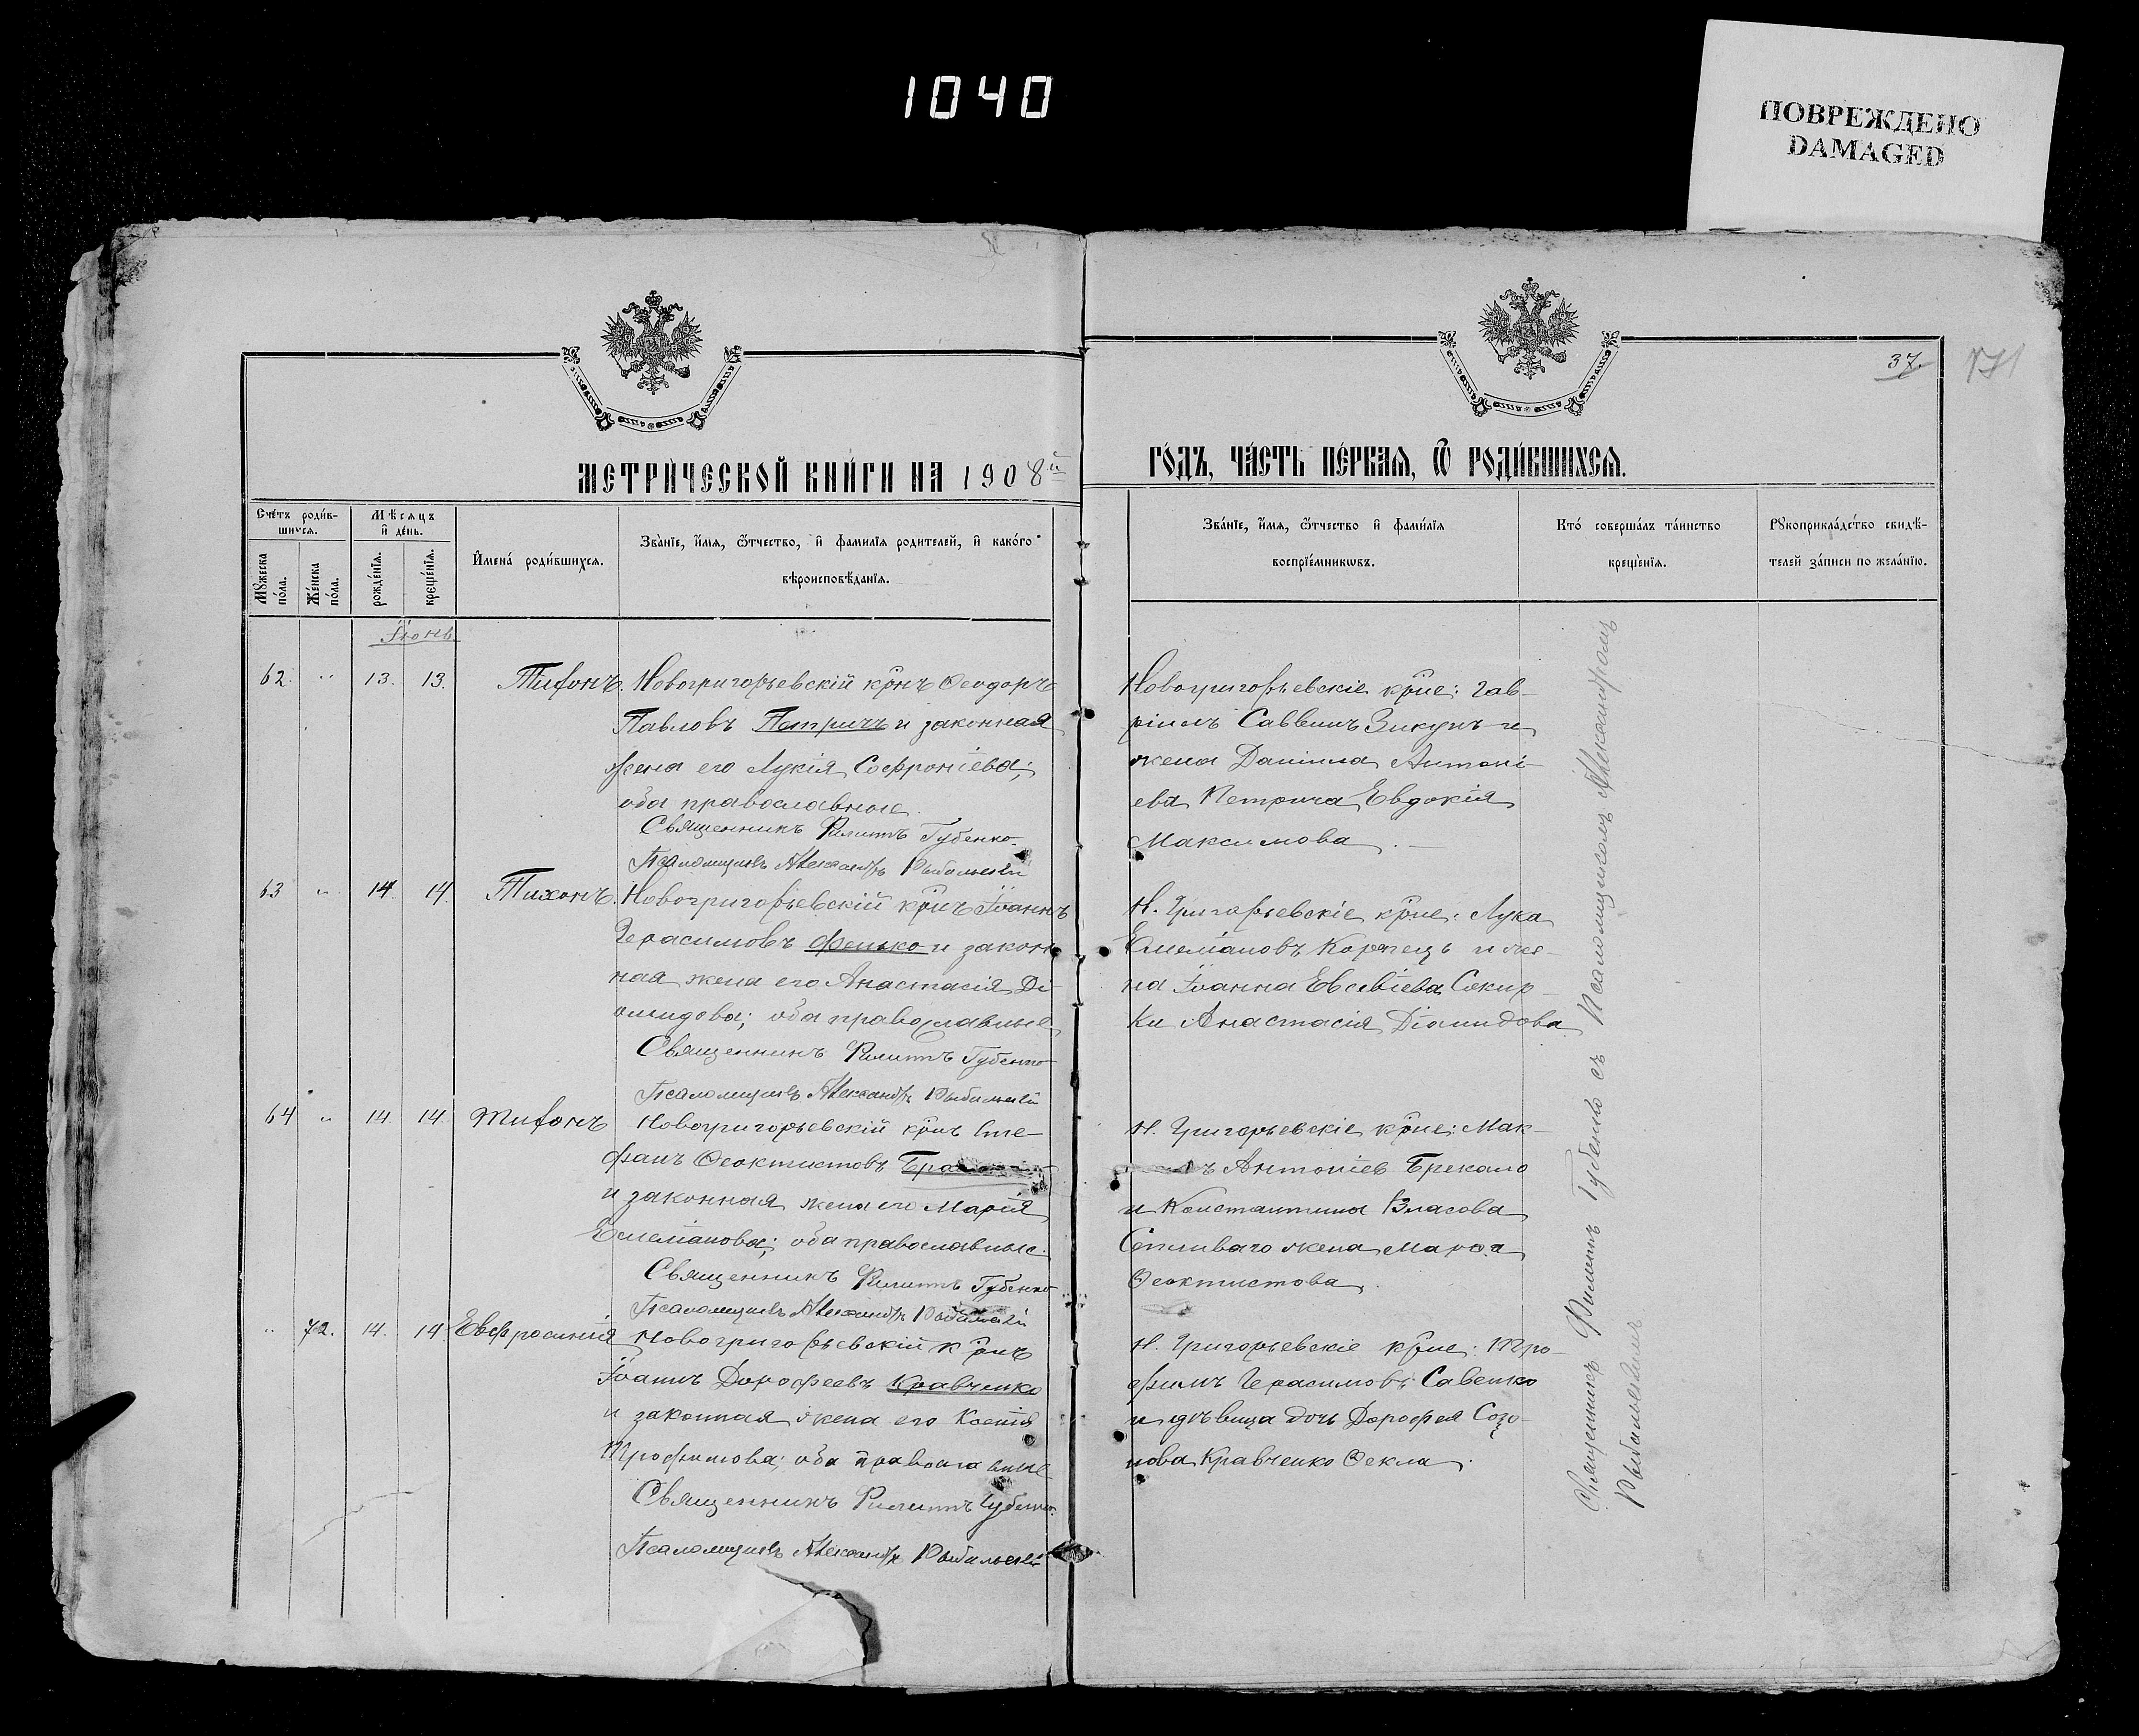 1040
ПОВРЕЖДЕНО
DAMAGED
37.
171
МЕТРИЧЕСКОЙ КНИГИ НА 1908й
ГОДЪ, ЧАСТЬ ПЕРВАЯ, Ѡ РОДИВШИХСЯ.
Счетъ родив-
шихся.
Мужеска
пола.
Женска
пола.
Мѣсяцъ
и день.
рожденія.
крещенія.
Имена родившихся.
Званіе, имя, ѿчество, и фамилія родителей, и какого
вѣроисповѣданія.
Званіе, имя, ѿчество и фамилія
воспріемниковъ.
Кто совершалъ таинство
крещенія.
Рукоприкладство свидѣ-
телей записи по желанію.
Іюнь
62. " 13. 13. Тихонъ. Новогригорьевскій крнъ Ѳеодоръ
Павловъ Петричъ и законная
жена его Лукія Софроніева;
оба православные.
Священникъ Филиппъ Губенко.
Псаломщикъ Александръ
Новогригорьевскіе крне: Гав-
ріилъ Саввинъ Зикунъ и
жена Даніила Антоні-
ева Петрича Евдокія
Максимова.
63 " 14. 14. Тихонъ. Новогригорьевскій крнъ Іоаннъ
Герасимовъ Фенько и закон
ная жена его Анастасія Ді-
омидова; оба православные
Священникъ Филиппъ Губенко
Псаломщикъ Александръ
Н. Григорьевскіе крне: Лука
Емеліановъ Коржецъ и же-
на Іоанна Евсевіева Сокир-
ки Анастасія Діомидова
64 " 14. 14. Тихонъ Новогригорьевскій крнъ Сте-
фанъ Ѳеоктистовъ
и законная жена его Марія
Емеліанова; оба православные.
Священникъ Филиппъ Губенко
Псаломщикъ Александръ
Н. Григорьевскіе крне: Мак-
Антоніев Брекало
и Константина Власова
жена Марѳа
Ѳеоктистова.
" 72. 14. 14 Евфросинія Новогригорьевскій крнъ
Іоаннъ Дорофеевъ Кравченко
и законная жена его Ксенія
Трофимова; оба православные
Священникъ Филиппъ Губенко.
Псаломщикъ Александръ
Н. Григорьевскіе крне: Тро-
фимъ Герасимовъ Савенко
и дѣвица дочь Дорофея Созо-
нова Кравченко Ѳекла.
Священникъ Филиппъ Губенко съ Псаломщикомъ Александромъ